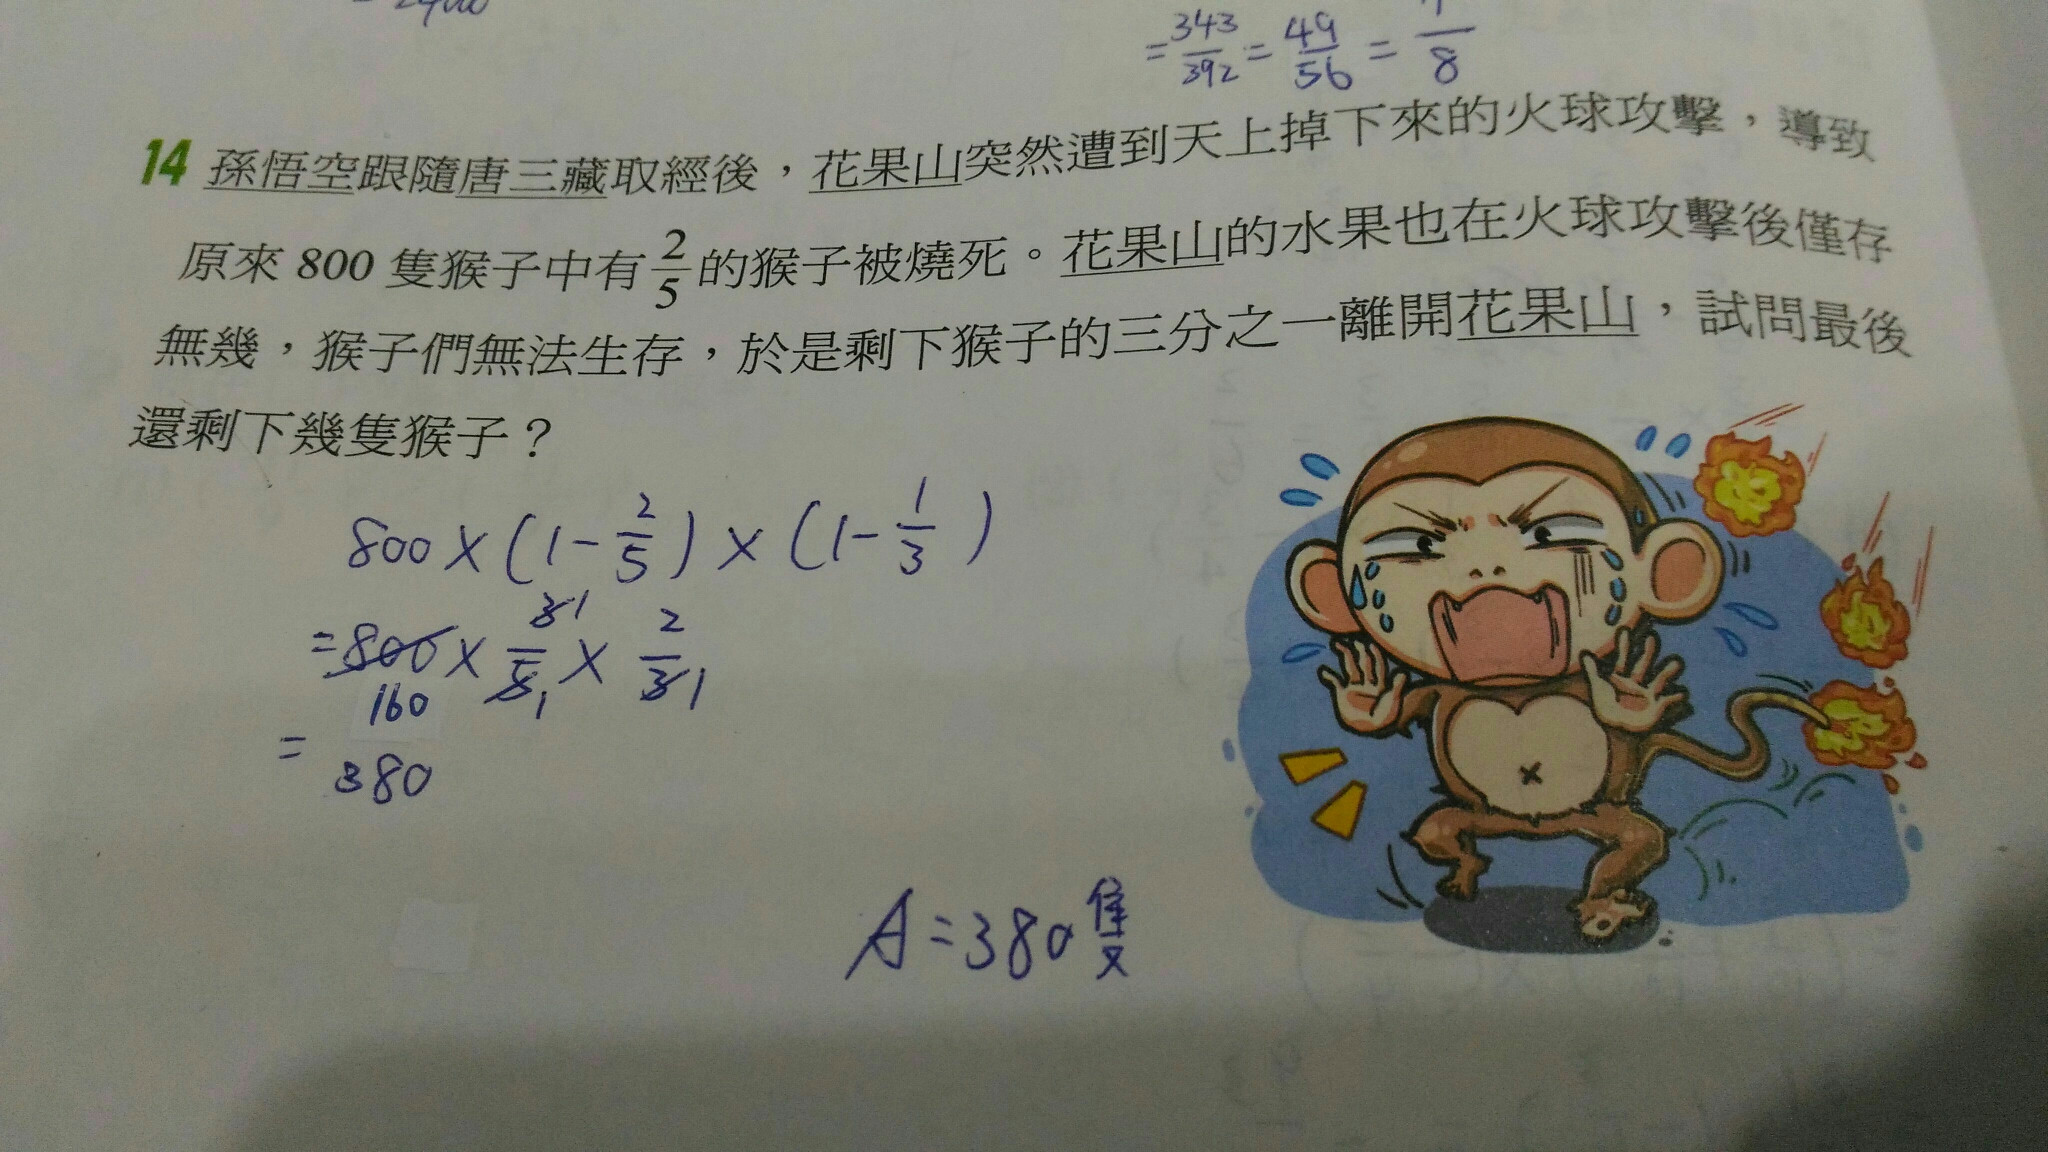 = 2400
= 343/392 = 49/56 = 7/8
14 孫悟空跟隨唐三藏取經後，花果山突然遭到天上掉下來的火球攻擊，導致
原來 800 隻猴子中有 2/5 的猴子被燒死。花果山的水果也在火球攻擊後僅存
無幾，猴子們無法生存，於是剩下猴子的三分之一離開花果山，試問最後
還剩下幾隻猴子？
800 × (1 - 2/5) × (1 - 1/3)
= 800 160 × 3 1/5 1 × 2/3 1
= 380
A = 380 隻